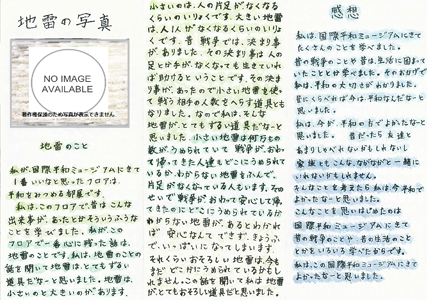 地雷の写真
NO IMAGE
AVAILABLE
著作権保護のため写真が表示できません
地雷のこと
私が国際平和ミュージアムにきて
1番いいなと思ったフロアは、
平和をみつめる部屋です。
私はこのフロアで昔はこんな
出来事が、あったとかそういうふうな
ことを学びました。私が、この
フロアで一番心に残った話は、
地雷のことです。私は、地雷のことの
話を聞いて地雷は、とてもずるい
道具だなーと思いました。地雷は、
小さいのと大きいのがあります。
小さいのは、人の片足がなくなる
くらいのいりょくです。大きい地雷
は、人1人がなくなるくらいのいりょ
くです。昔戦争では、決まり事
がありました。その決まり事は人の
足とか手がなくなっても生きていれ
ば助けるということです。その決ま
り事があったので小さい地雷を使っ
て戦う相手の人数をへらす道具とも
なりました。なので私は、そんな
地雷が、とてもずるい道具だなーと
思いました。小さい地雷は何万もの
数がうめられていて戦争が、おわっ
て帰ってきた人達もどこにうめられて
いるか、わからない地雷をふんで、
片足がなくなっている人もいます。その
せいで、戦争がおわって安心して帰っ
てきたのにどこにうめられているか
わからない地雷が、あるとわかれ
ば安心なんてできず、きょうふ
で、いっぱいになってしまいます。
それくらいおそろしい地雷は、今も
まだどこかにうめられているかもし
れません。この話を聞いて私は地雷
がとてもおそろしい道具だと思いました。
感想
私は、国際平和ミュージアムにきて
たくさんのことを学べました。
昔の戦争のことや昔は、生活に困ってい
たことなどが学べました。そのおかげで
私は、平和の大切さがわかりました。
昔にくらべれば今は平和なんだなーと
思いました。
私は、今が平和の方でよかったなーと
思いました。昔だったら友達と
あまりしゃべれないかもしれないし
家族ともこんなになかがよく一緒に
いれないかもしれません。
そんなことを考えたら私は今平和で
よかったなーと思いました。
こんなことを思いはじめたのは
国際平和ミュージアムにきて
昔の戦争のことや昔の生活のこと
をいろいろ学べたからです。
私は、この国際平和ミュージアムにきて
よかったなーと思いました。